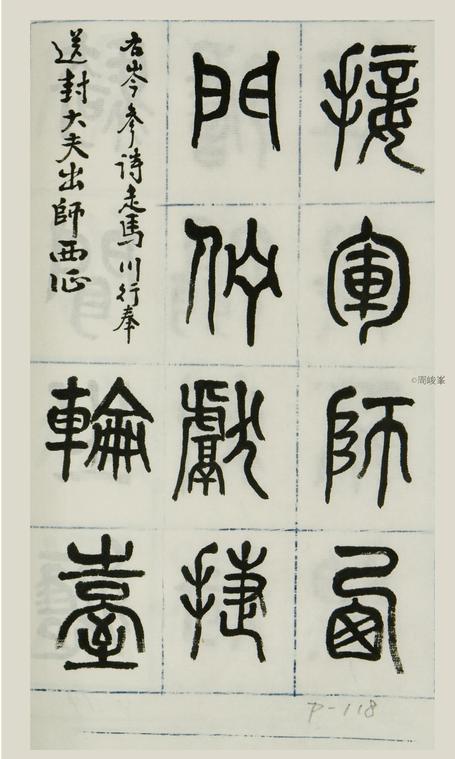 接軍師西
門佇獻捷
右岑參詩走馬川行奉
送封大夫出師西征
輪臺
P-118
©周峻峯